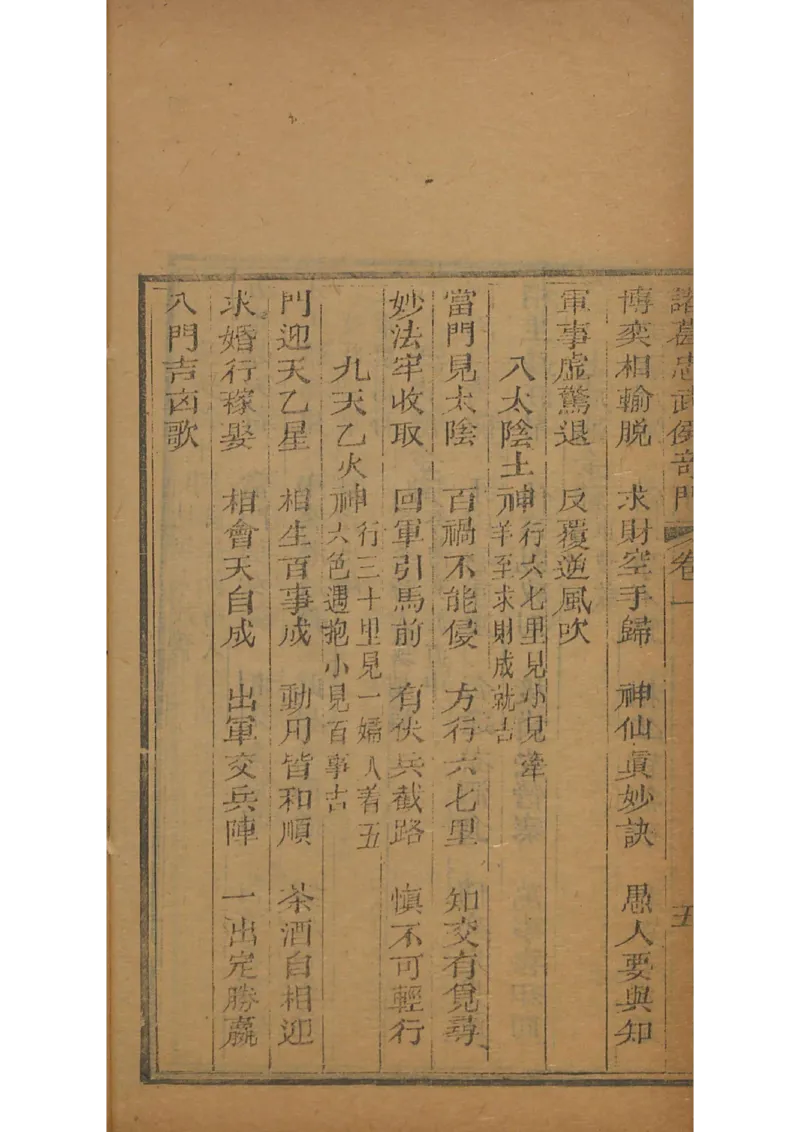 諸葛忠武侯奇門 卷一 五
博奕相輸脫 求財空手歸 神仙眞妙訣 愚人要與知
軍事虛驚退 反覆逆風吹
八太陰土神行六七里見小兒牽
羊至求財成就吉
當門見太陰 百禍不能侵 方行六七里 知交有覓尋
妙法牢收取 回軍引馬前 有伏兵截路 慎不可輕行
九天乙火神行三十里見一婦人着五
六色遇抱小兒百事吉
門迎天乙星 相生百事成 動用皆和順 茶酒自相迎
求婚行稼娶 相會天自成 出軍交兵陣 一出定勝贏
八門吉凶歌